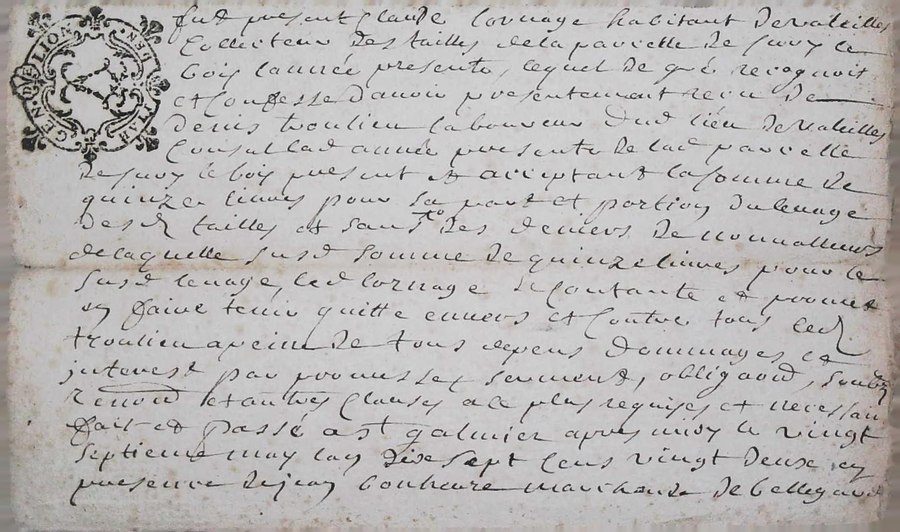 GEN · DE LION
fut present Claude Cornage habitant de valeilles
Collecteur des tailles de la parroisse de Sury le
bois lannée presente, lequel de gré recognoit
et Confesse d'avoir presentement receu de
denis troulieu laboureur dud lieu de valeilles
Consul lad année presente de lad parroisse
de Sury le bois present et acceptant la somme de
quinze livres pour sa part et portion du levage
desd tailles et des deniers de
de laquelle susd somme de quinze livres pour le
susd levage, led Cornage se contante et promet
en faire tenir quitte envers et Contre tous led
troulieu a peine de tous depens dommages et
interest par promisses serment, obligaond,
renond et autres Clauses a ce plus requises et necessair
fait et passé a st galmier apres midy le vingt
septieme may lan dix sept cens vingt deux en
presence de jean bonheure marchand de bellegarde